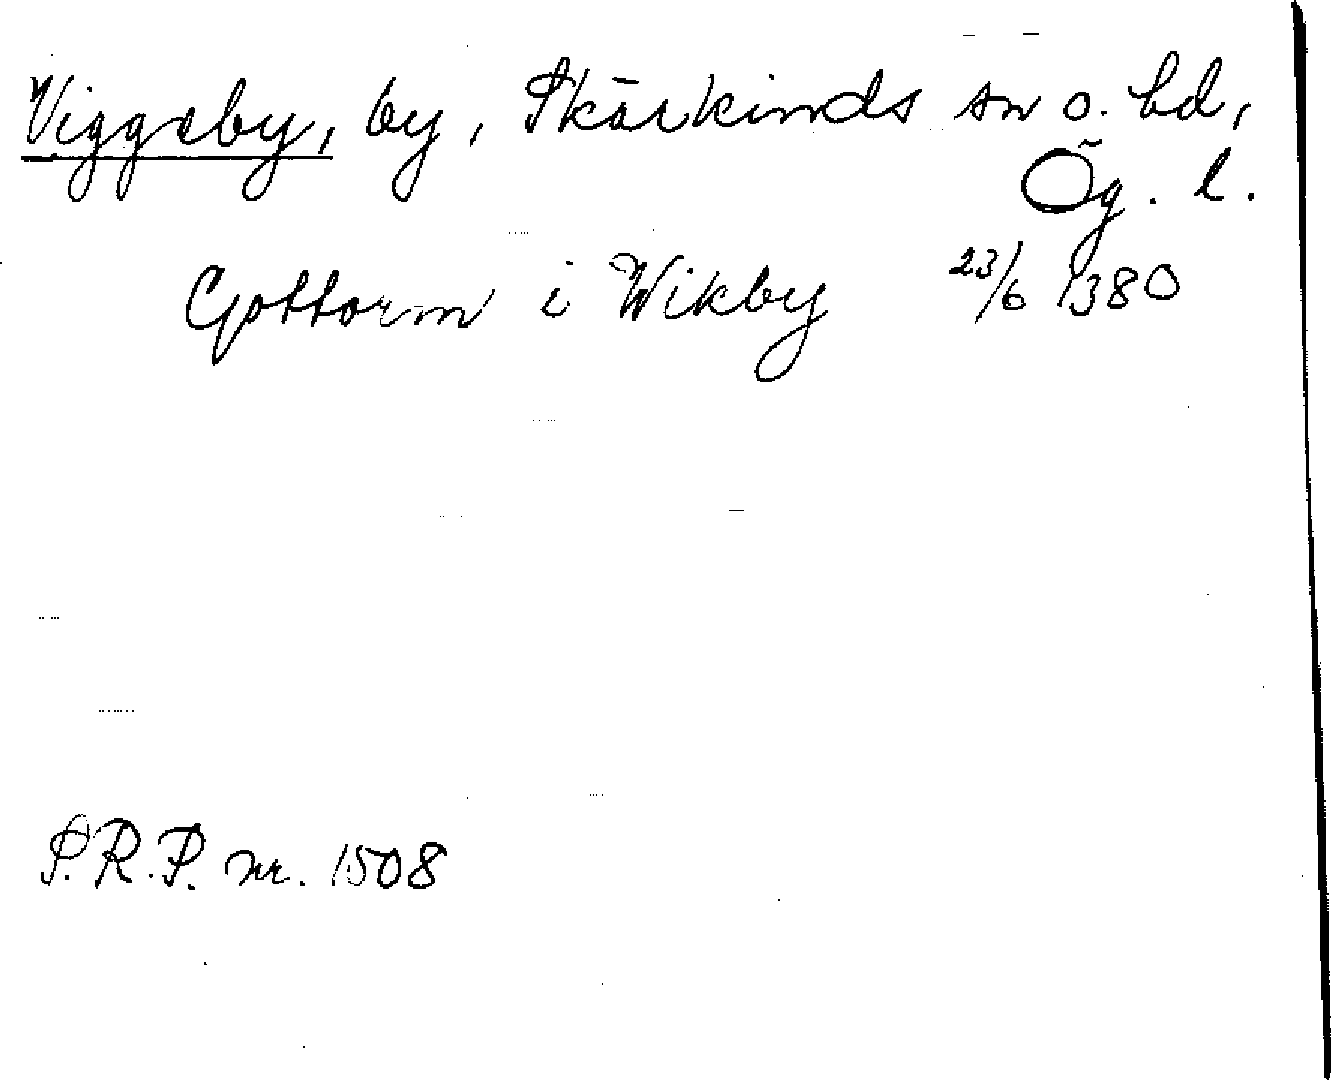 Viggeby, by, Skärkinds sn o. hd,
Ög. l.
Gottorm i Wikby 23/6 1380
S.R.P. nr. 1508